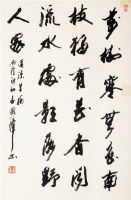 萬樹寒無色南
枝獨有花香聞
流水處影落野
人家
道源早梅